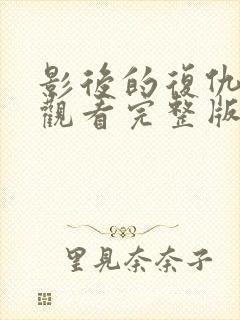 影後的復仇
觀看完整版
里見奈奈子